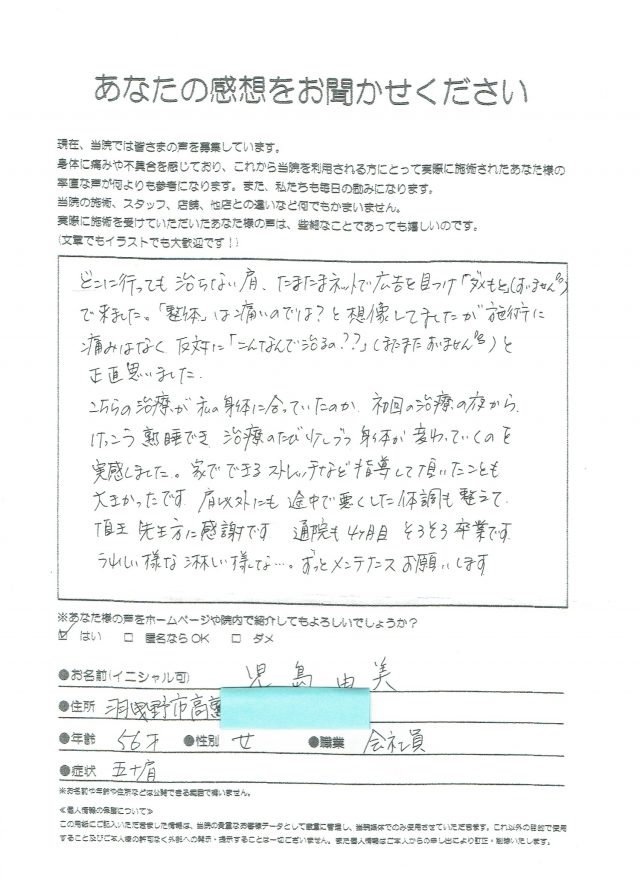 あなたの感想をお聞かせください
現在、当院では皆さまの声を募集しています。
身体に痛みや不具合を感じており、これから当院を利用される方にとって実際に施術されたあなた様の
率直な声が何よりも参考になります。また、私たちも毎日の励みになります。
当院の施術、スタッフ、店舗、他店との違いなど何でもかまいません。
実際に施術を受けていただいたあなた様の声は、些細なことであっても嬉しいのです。
(文章でもイラストでも大歓迎です！)
どこに行っても治らない肩、たまたまネットで広告を目つけ「ダメもと(すいません)」
で来ました。「整体」は痛いのでは？と想像してましたが施術に
痛みはなく反対に「こんなんで治るの？？」(またまたすいません)と
正直思いました.
こちらの治療が私の身体に合っていたのか、初回の治療の夜から、
けっこう熟睡でき治療のたび少しづつ身体が変わっていくのを
実感しました。家でできるストレッチなど指導して頂いたことも
大きかったです 肩以外にも途中で悪くした体調も整えて
頂き 先生方に感謝です 通院も4ヶ月目 そろそろ卒業です
うれしい様な淋しい様な…。ずっとメンテナンスお願いします
※あなた様の声をホームページや院内で紹介してもよろしいでしょうか？
☑ はい □ 匿名ならOK □ ダメ
●お名前(イニシャル可) 児島由美
●住所 羽曳野市高
●年齢 56才 ●性別 女 ●職業 会社員
●症状 五十肩
※お名前や年齢や住所などは公開できる範囲で構いません。
≪個人情報の保護について≫
この用紙にご記入いただきました情報は、当院の貴重なお客様データとして厳重に管理し、当院媒体でのみ使用させていただきます。これ以外の目的で使用
すること及びご本人様の許可なく外部への開示・提示することは一切ございません。また個人情報はご本人からの申し出により訂正・削除いたします。